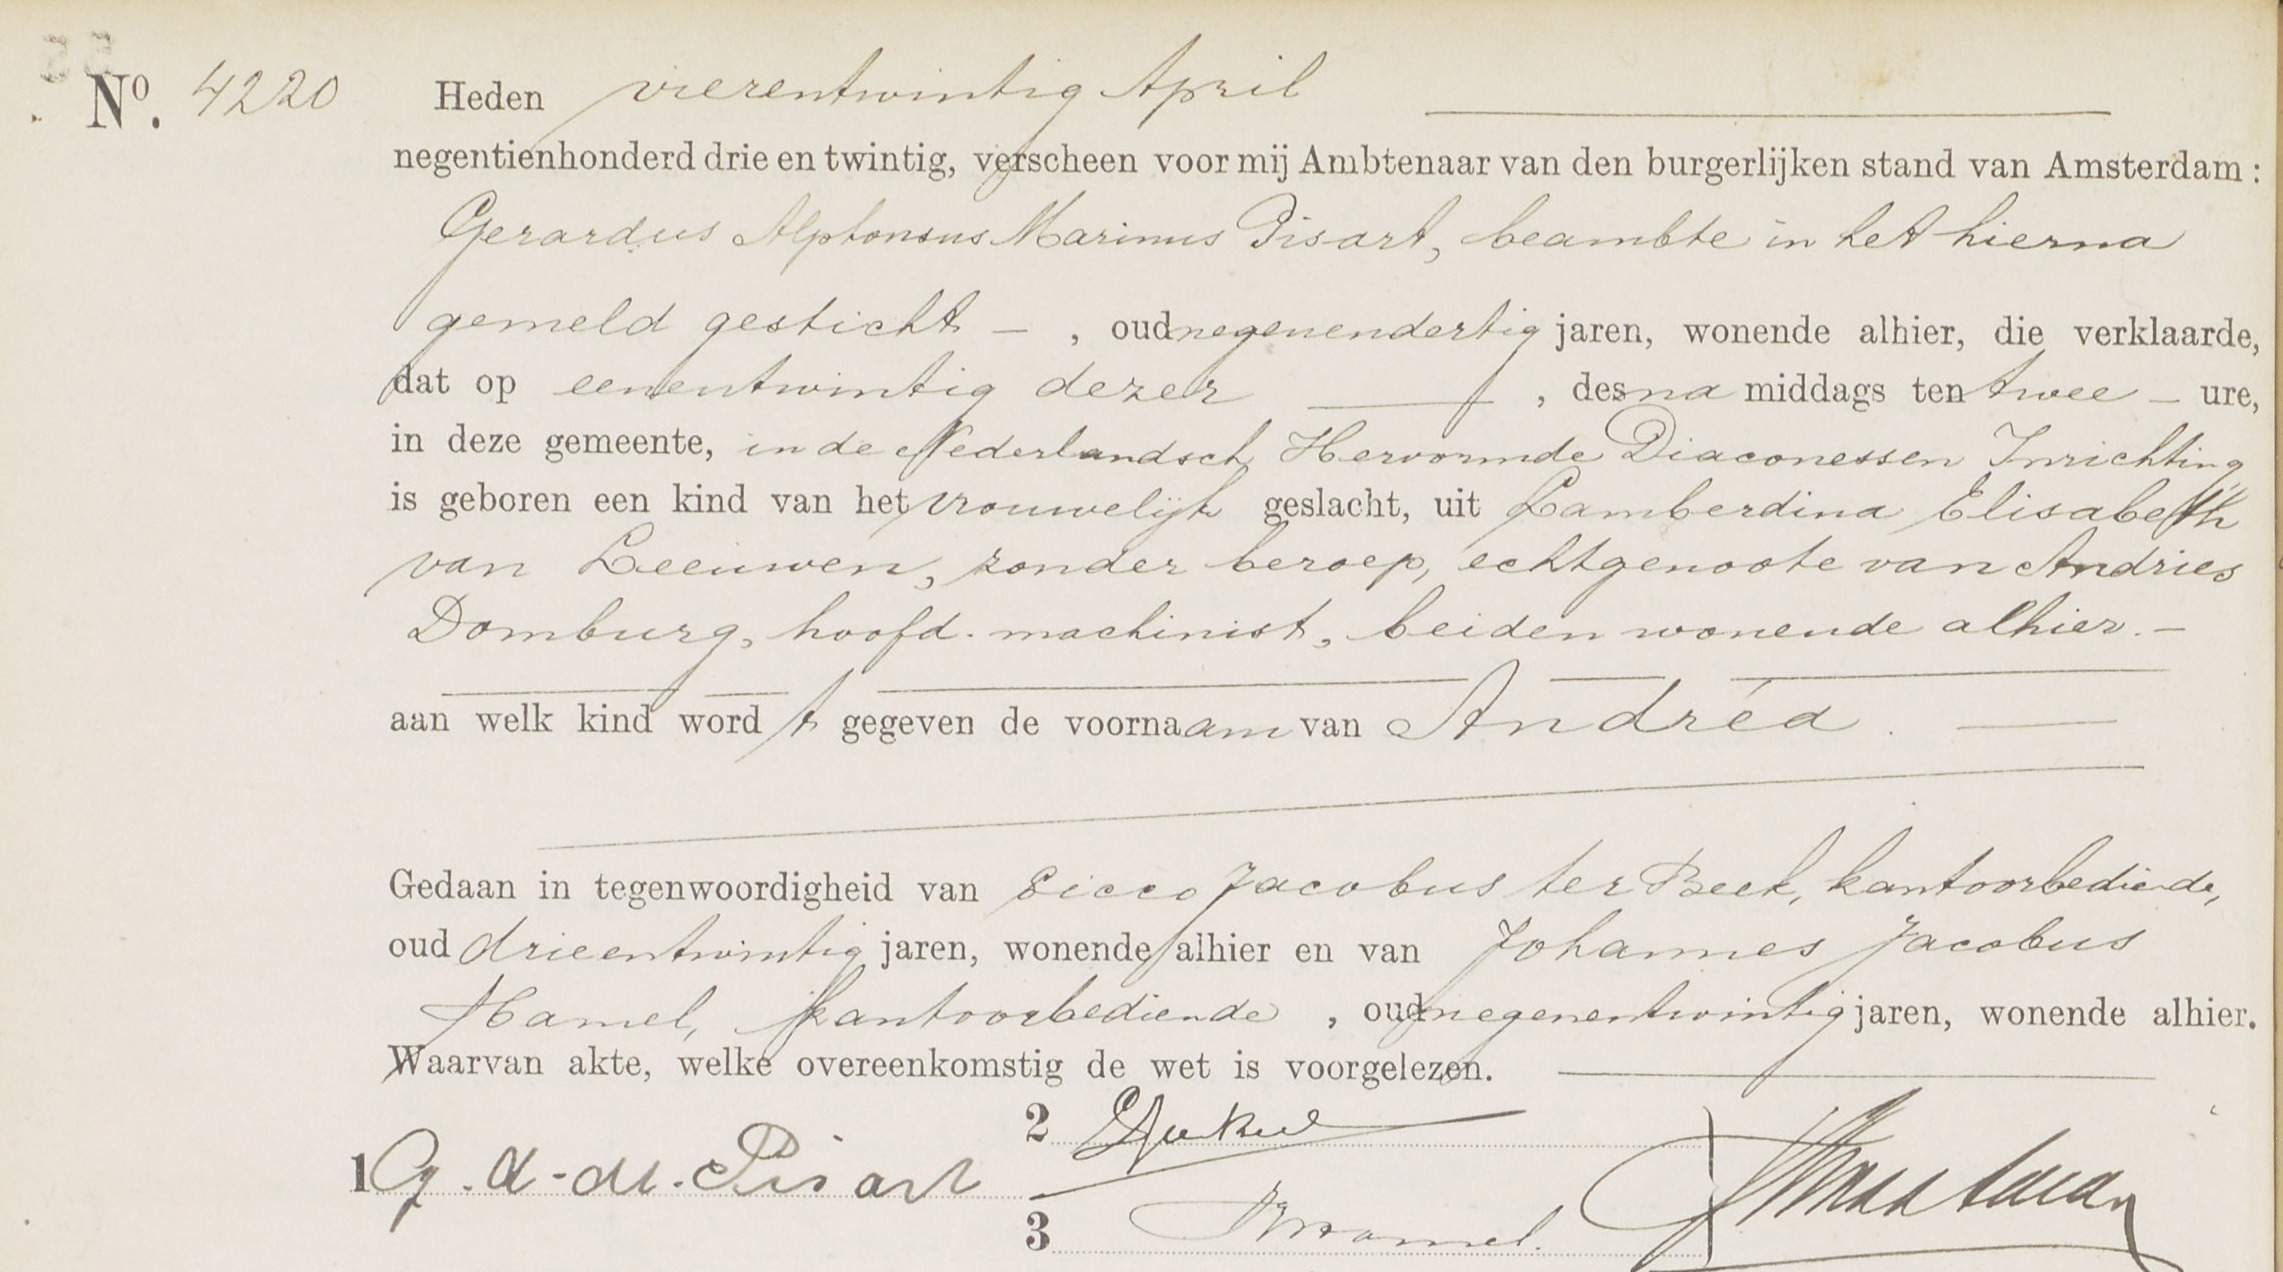 No. 4220 Heden vierentwintig April
negentienhonderd drie en twintig, verscheen voor mij Ambtenaar van den burgerlijken stand van Amsterdam:
Gerardus Alphonsus Marinus Pisart, beambte in het hierna
gemeld gesticht – , oud negenendertig jaren, wonende alhier, die verklaarde,
dat op eenentwintig dezer , des na middags ten twee – ure,
in deze gemeente, in de Nederlandsch Hervormde Diaconessen Inrichting
is geboren een kind van het vrouwelijk geslacht, uit Lamberdina Elisabeth
van Leeuwen, zonder beroep, echtgenoote van Andries
Domburg, hoofd-machinist, beiden wonende alhier. –
aan welk kind wordt gegeven de voornaam van Andréa.
Gedaan in tegenwoordigheid van Eicco Jacobus ter Beek, kantoorbediende,
oud drieentwintig jaren, wonende alhier en van Johannes Jacobus
Hamel, kantoorbediende , oud negenentwintig jaren, wonende alhier.
Waarvan akte, welke overeenkomstig de wet is voorgelezen.
2
1 G. A. M. Pisart
3 Hamel.